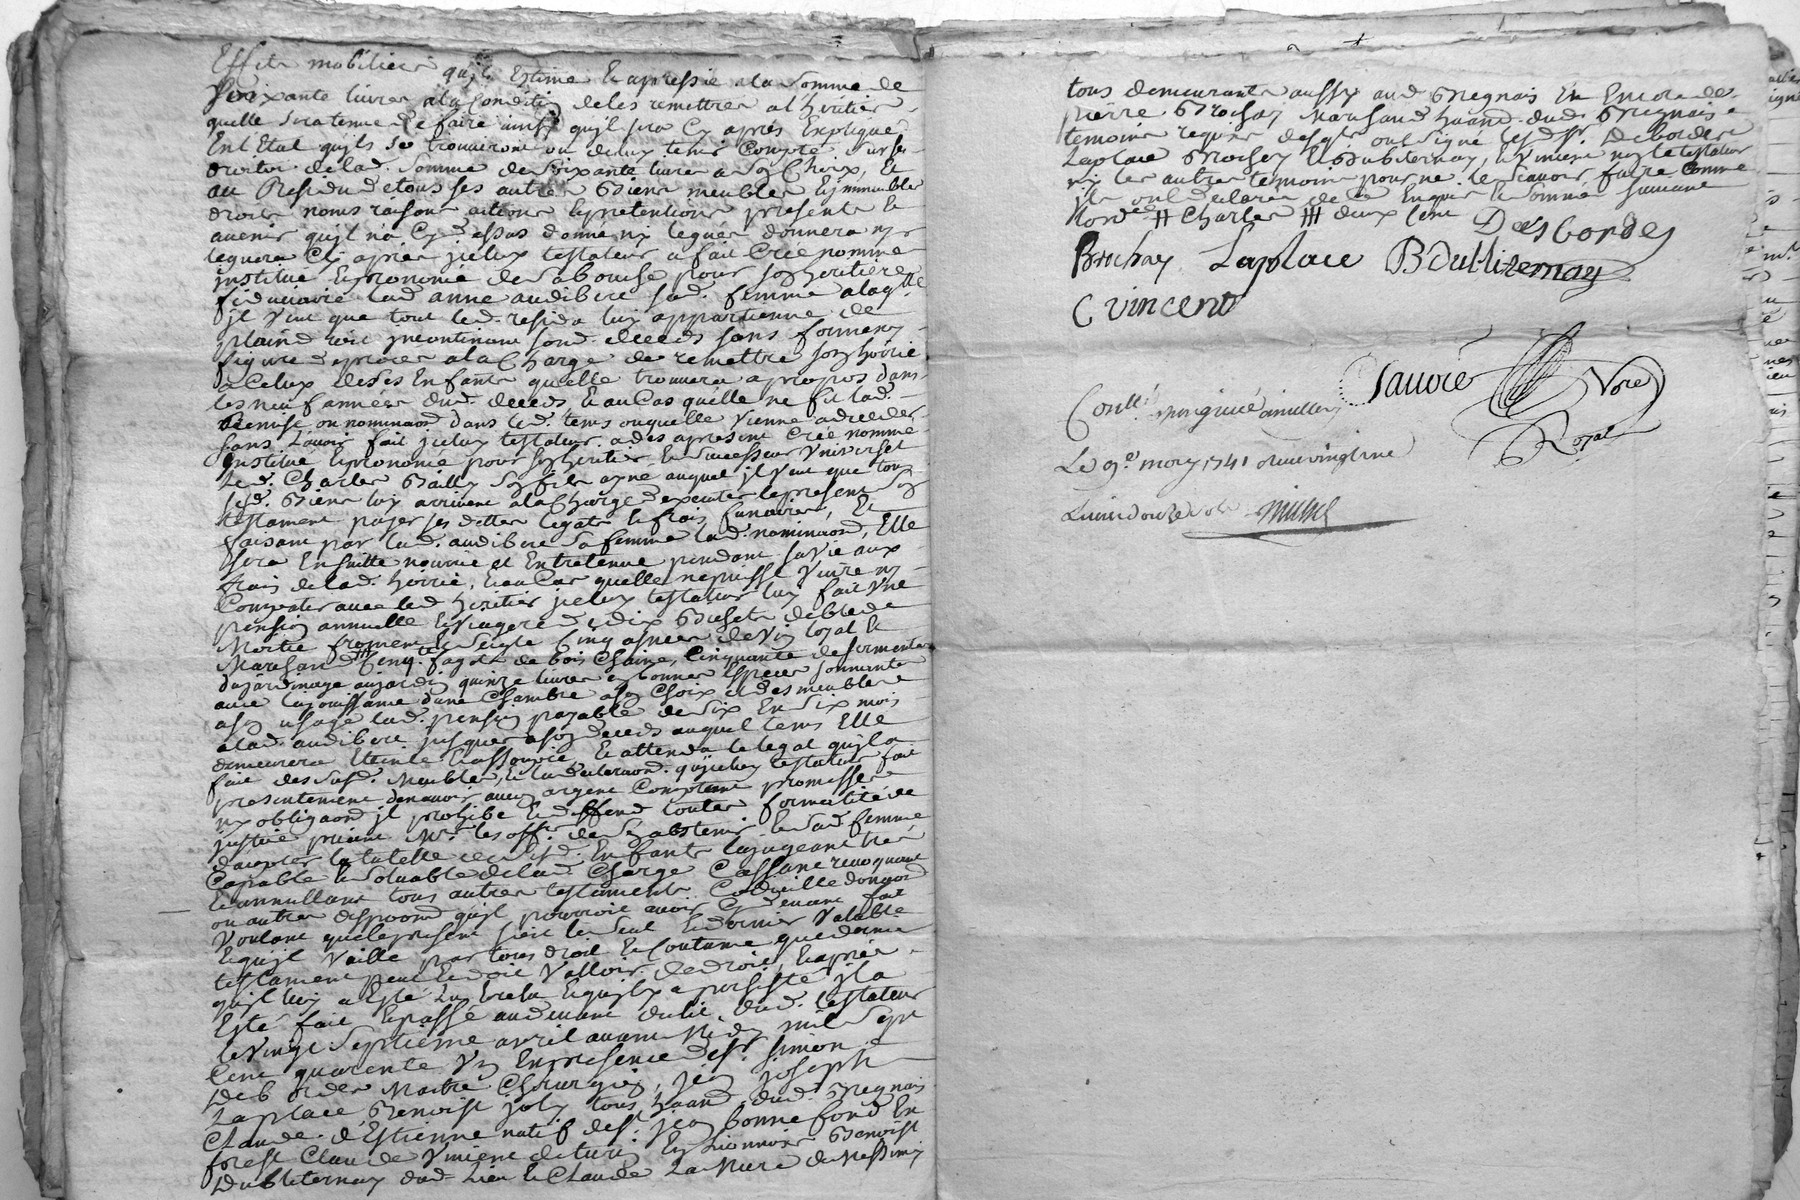 Effets mobiliers qu'il Estime & apressie a la somme de
soixante livres a la Condition de les remettre a l'héritier
quelle sera tenue de faire ainsy qu'il sera Cy après Expliqué
En l'Etat qu'ils se trouveront ou deluy tenir Compte sur ses
droits de lad. somme de soixante livres a son Choix, Et
au Residu de tous ses autres Biens meubles & immeubles
droits noms raisons actions & pretentions presents &
avenir qu'il n'a Cy dessus donné ny legués donnera ny
leguera Cy après jceluy testateur a fait Créé nommé
institué & prononcé de sa bouche pour son heritiere
fiduciaire lad. anne audibert sad. femme a laqlle
jl veut que tout led. residu luy appartienne de
plain droit jncontinant sond. deceds sans forme ny
figure de procès a la Charge de remettre son hoirie
a Celuy de ses Enfants quelle trouvera a propos dans
les neuf années dud. deceds & au Cas quelle ne fit lad.
Remise ou nominaon dans led. tems ou quelle vienne a deceder
sans l'avoir fait jceluy testateur a des apresent Créé nommé
institué & prononcé pour son heritier & successeur Universel
led. Charles Bailly son fils ayné auquel jl veut que tous
sesd. Biens luy arrivent a la Charge d'executer le present son
testament payer ses dettes legats & frais funeraires, Et
faisant par lad. audibert sa femme lad. nominaon, Elle
sera Ensuitte nourrie et Entretenue pendant sa vie aux
frais de lad. hoirie, & au Cas quelle ne puisse vivre ny
Compatir avec led. héritier jceluy testateur luy fait Une
pension annuelle & viagere de dix Bichets de bled
Moitié froment & seigle Cinq asnées de vin loyal &
Marchand Cent fagots de bois Chaine, Cinquante de serments
du jardinage au jardin quinze livres En bonnes Espèces sonnantes
avec la jouissance d'une Chambre a son Choix et des meubles
a son usage lad. pension payable de six En six mois
a lad. audibert jusques a son deceds auquel tems Elle
demeurera Eteinte & assoupie, Et attendu le legat qu'il a
fait des susd. Meubles, & la declaraon qu'jceluy testateur fait
presentement de n'avoir aucun argent Comptant promesses
ny obligaons jl prohibe & deffend toutes formalités de
justice priant Mrs les offrs de s'en abstenir & sad. femme
d'accepter la tutelle de sesd. Enfants la jugeant très
Capable & solvable de lad. Charge Cassant revoquant
& annullant tous autres testaments Codicille donaon
ou autres disposons qu'jl pourroit avoir Cy devant fait
Voulant que le present soit le seul & dernier Valable
& qu'jl Vaille par tous droit & Coutume que dernier
testament peut & doit Valloir de droit, & après
qu'jl luy a Esté lû & relu & qu'jl y a persisté jl a
Esté fait & passé au devant du lit dud. testateur
le vingt septieme avril avant Midy mil sept
Cent quarente Un En presence des Sr. Simon
Desbordes Maitre Chirurgien, jean joseph
Laplace Benoist joly tous habitants dud. Bregnais
Claude d'Estienne natif de St. jean bonnefond En
forest Claude Vincent de turin En Lionnois Benoist
Dubliternay dud. Lieu & Claude La Mure de Messimy
tous demeurants aussy aud. Bregnais Et Encore de
pierre Brochay Marchand habitant dud. Bregnais
temoins requis desqls ont signé lesd. Srs. Desbordes
Laplace Brochay & Dubliternay, & Vincent non le testateur
ny les autres temoins pour ne le scavoir faire Comme
jls ont declaré de ce Enquis & sommés suivant
l'ord.ce # Charles ## deux Cent
DesBordes
Brochay Laplace BDubliternay
C vincent
Sauvré No.re Royal
Conllé
Le 9e may 1741
Livres douze sols Michel